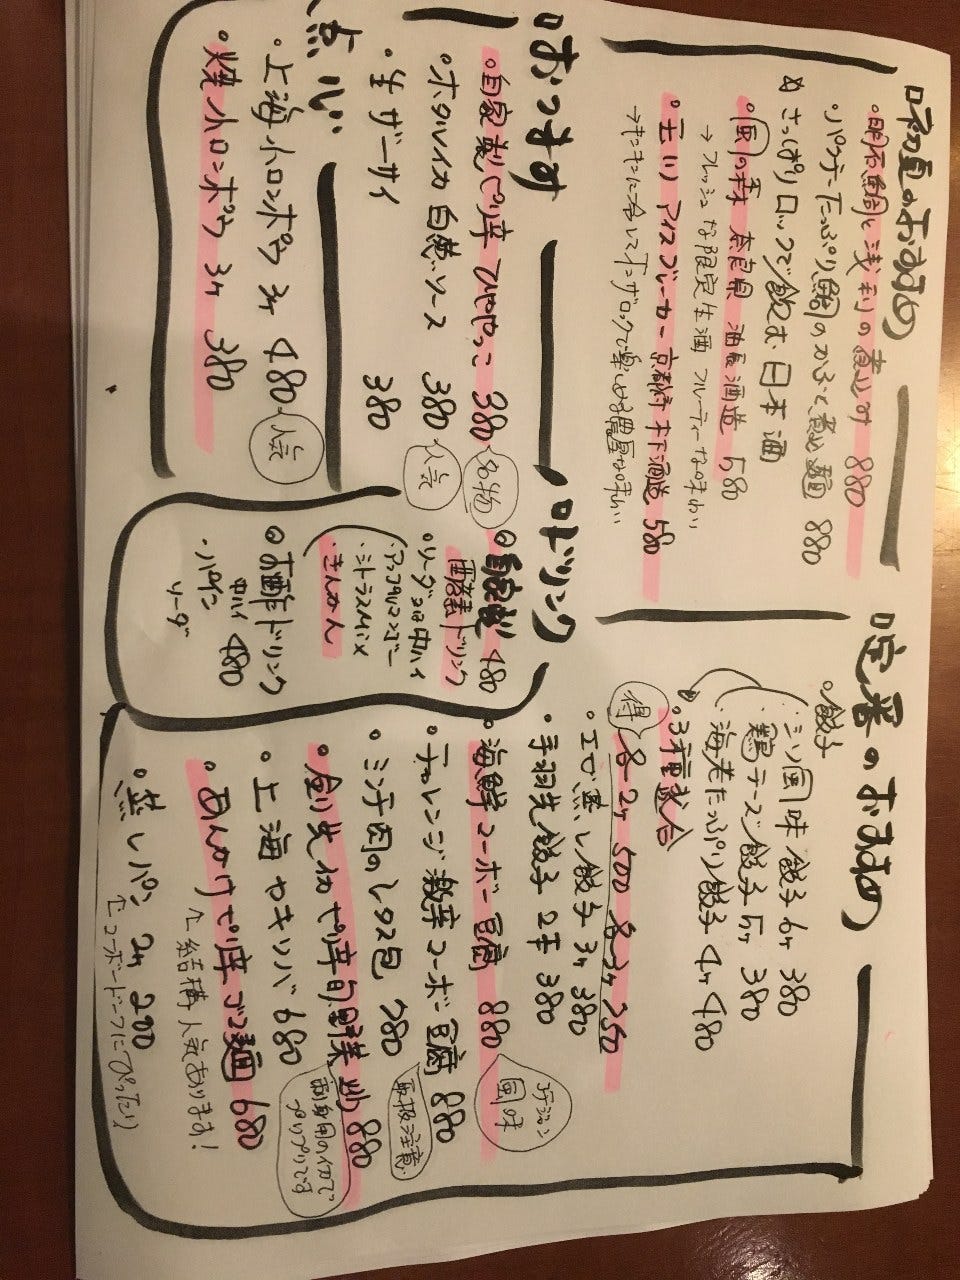 初夏のおすすめ
・明石鯛と浅利の煮込み 880
・パクチーたっぷり鯛のかぶと煮込麺 880
さっぱりロックで飲む日本酒
・風の森 奈良県 油長酒造 580
→フレッシュな限定生酒 フルーティーな味わい
・玉川 アイスブレーカー 京都府 木下酒造 580
→キンキンに冷してオンザロックで楽しめる濃厚な味わい
おつまみ
・自家製ピリ辛ひややっこ 380 名物
・ホタルイカ 自慈ソース 380 人気
・生ザーサイ 380
点心
・上海小ロンポウ 3ヶ 480 人気
・焼小ロンポウ 3ヶ 380
ドリンク
自家製 480
酵素ドリンク
・ソーダor中ハイ
・アップルマンゴー
・シトラスMIX
・きんかん
お酢ドリンク
中ハイ 480
・パイン
ソーダ
定番のおすすめ
・餃子
・ミソ風味餃子 6ヶ 380
・鶏チーズ餃子 5ヶ 380
・海老たっぷり餃子 4ヶ 480
・3種盛合
得 各2ヶ 500 各3ヶ 750
・エビ蒸し餃子 3ヶ 380
・手羽先餃子 2本 380
・海鮮マーボー豆腐 880
風味
・チャレンジ激辛マーボー豆腐 880
取扱注意
・ミンチ肉のレタス包 780
・剣先イカピリ辛旬鮮菜炒 880
刺身用のイカで
プリプリです
・上海ヤキソバ 680
・あんかけピリ辛ゴマ麺 680
↑結構人気あります!
・蒸しパン 2ヶ 200
↑マーボードーフにぴったり